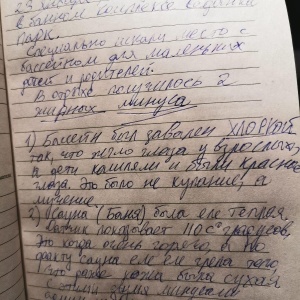 в банном комплексе
парк.
Специально искали место с
бассейном для маленьких
детей и родителей.
В отрыве получилось 2
жирных минуса
1) Бассейн был завален хлоркой
так, что жгло глаза у взрослых,
а дети кашляли и были красные
глаза. Это было не купание, а
мучение.
2) Сауна (Баня) была еле теплая,
датчик показывает 110 C° градусов,
Это когда очень горячо, а по
факту сауна еле еле грела тело,
кожа была сухой
С этими двумя минусами